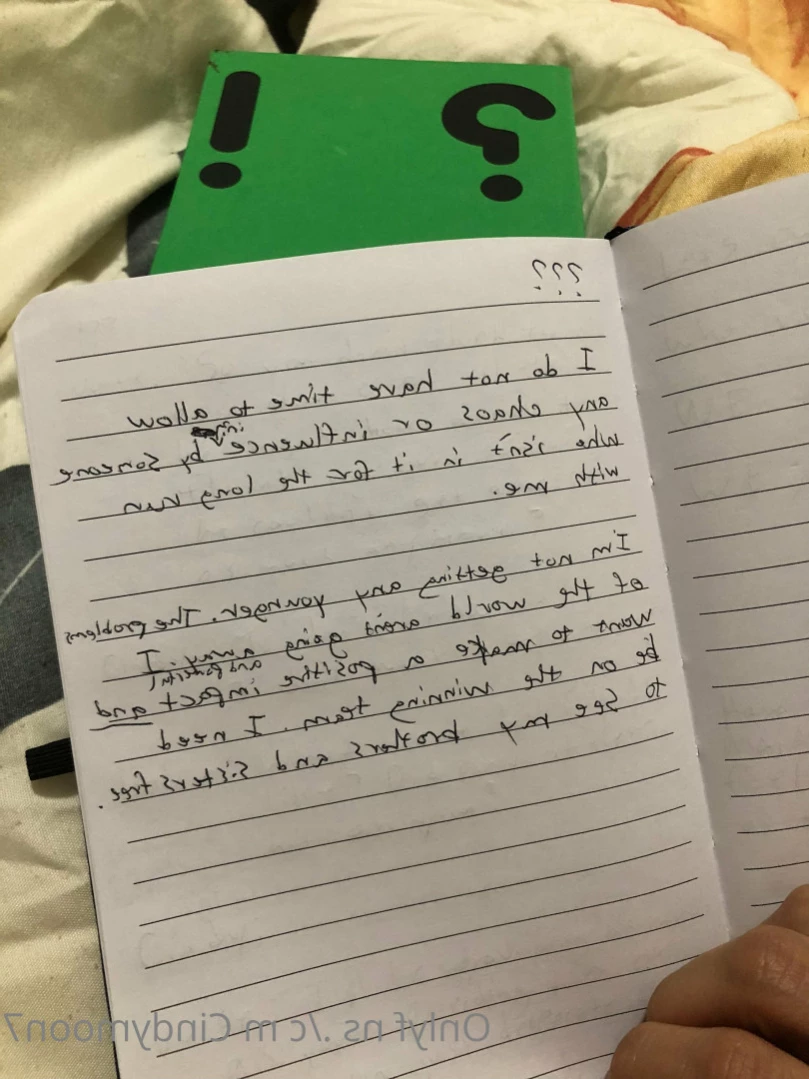 ? !
???
I do not have time to allow
any chaos or influence by someone
who isn't in it for the long run
with me.
I'm not getting any younger. The problems
of the world arent going away. I
want to make a positive impact and
be on the winning team. I need
to see my brothers and sisters free.
Onlyf ns ./c m Cindymoon7